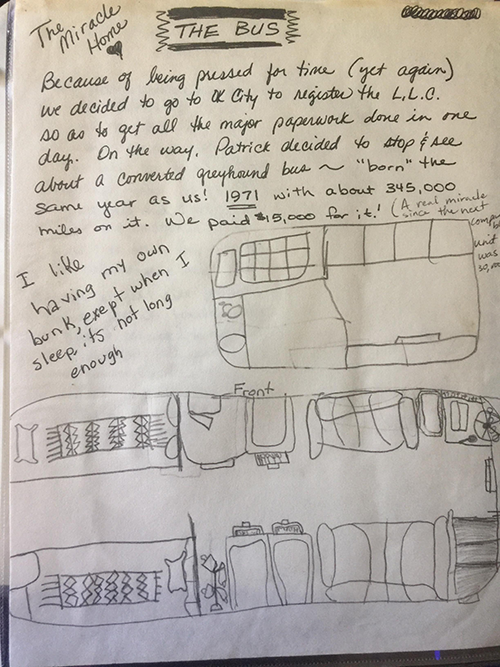 The Miracle Home
THE BUS
Because of being pressed for time (yet again)
we decided to go to OK City to register the L.L.C.
so as to get all the major paperwork done in one
day. On the way, Patrick decided to stop & see
about a converted greyhound bus ~ "born" the
same year as us! 1971 with about 345,000
miles on it. We paid $15,000 for it! (A real miracle
since the next
unit
was
I like
having my own
bunk, exept when I
sleep its not long
enough
Front